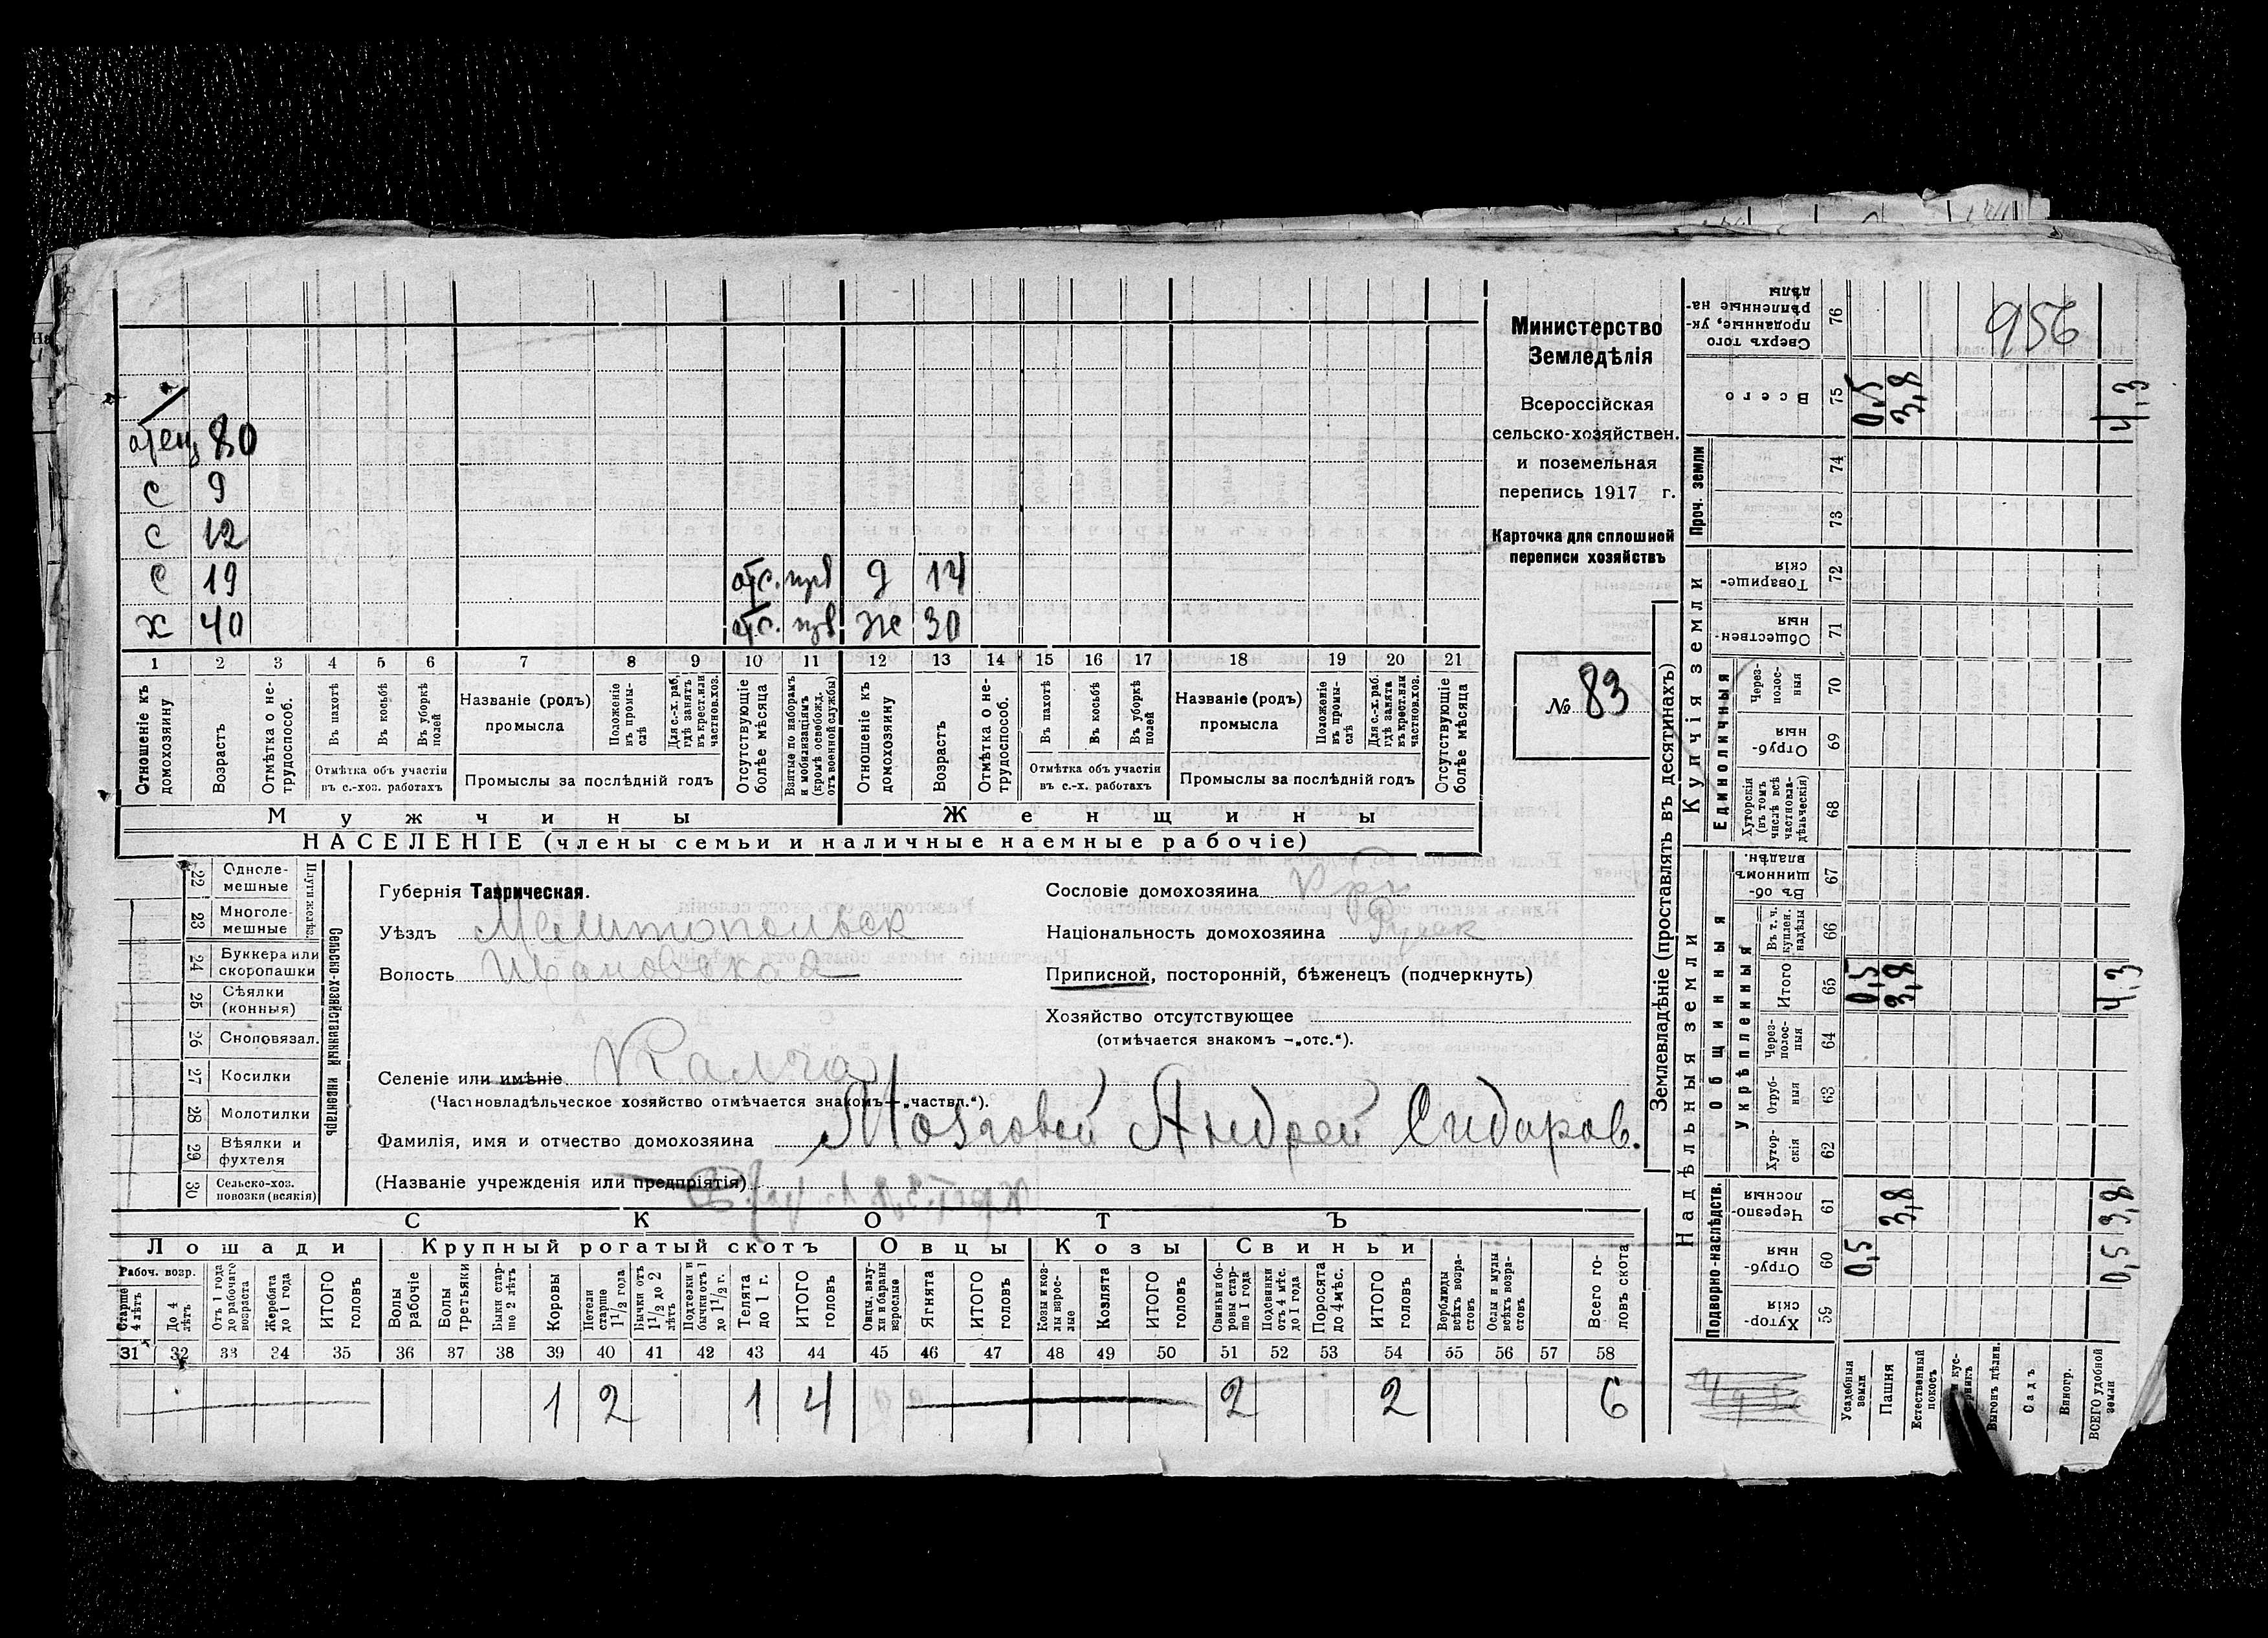 956
Министерство
Земледѣлія
Всероссійская
сельско-хозяйствен.
и поземельная
перепись 1917 г.
Карточка для сплошной
переписи хозяйствъ
№ 83
отец 80
с 9
с 12
с 19 отс. д 14
х 40 отс. ж 30
1 2 3 4 5 6 7 8 9 10 11 12 13 14 15 16 17 18 19 20 21
Отношеніе къ домохозяину
Возрастъ
Отмѣтка о не-трудоспособ.
Въ пахотѣ
Въ косьбѣ
Въ уборкѣ полей
Отмѣтка объ участіи
въ с.-хоз. работахъ
Названіе (родъ)
промысла
Положеніе въ промы-слѣ
Для с.-х. раб. гдѣ занятъ въ крест. или частнов. хоз.
Промыслы за послѣдній годъ
Отсутствующіе болѣе мѣсяца
Взятые по наборамъ и мобилизаціямъ (кромѣ освобожд. отъ военной службы)
Отношеніе къ домохозяину
Возрастъ
Отмѣтка о не-трудоспособ.
Въ пахотѣ
Въ косьбѣ
Въ уборкѣ полей
Отмѣтка объ участіи
въ с.-х. работахъ
Названіе (родъ)
промысла
Положеніе въ промы-слѣ
Для с.-х. раб. гдѣ занята въ крест. или частнов. хоз.
Промыслы за послѣдній годъ
Отсутствующіе болѣе мѣсяца
Мужчины Женщины
НАСЕЛЕНІЕ (члены семьи и наличные наемные рабочіе)
22 Одноле-мешные
23 Многоле-мешные
Плуги желѣз.
24 Буккера или скоропашки
25 Сѣялки (конныя)
26 Сноповязал.
27 Косилки
28 Молотилки
29 Вѣялки и фухтеля
30 Сельско-хоз. повозки (всякія)
Сельско-хозяйственный инвентарь
Губернія Таврическая.
Уѣздъ Мелитопольск
Волость Ивановская
Селеніе или имѣніе Калга
(Частновладѣльческое хозяйство отмѣчается знакомъ —„частвл.“).
Фамилія, имя и отчество домохозяина Мозговой Андрей Сидоров.
(Названіе учрежденія или предпріятія)
Сословіе домохозяина Кр.
Національность домохозяина
Приписной, посторонній, бѣженец (подчеркнуть)
Хозяйство отсутствующее
(отмѣчается знакомъ —„отс.“).
СКОТЪ
Лошади Крупный рогатый скотъ Овцы Козы Свиньи
Рабоч. возр.
Старше 4 лѣтъ
До 4 лѣтъ
Отъ 1 года до рабочаго возраста
Жеребята до 1 года
ИТОГО головъ
Волы рабочіе
Волы третьяки
Быки стар-ше 2 лѣтъ
Коровы
Нетели старше 1 1/2 года
Бычки отъ 1 1/2 до 2 лѣтъ
Подтелки и бычки отъ 1 до 1 1/2 г.
Телята до 1 г.
ИТОГО головъ
Овцы, валу-хи и бараны взрослые
Ягнята
ИТОГО головъ
Козы и коз-лы взрос-лые
Козлята
ИТОГО головъ
Свиньи и бо-ровы стар-ше 1 года
Подсвинки отъ 4 мѣс. до 1 года
Поросята до 4 мѣс.
ИТОГО головъ
Верблюды всѣхъ возра-стовъ
Ослы и мулы всѣхъ возра-стовъ
Всего го-ловъ скота
31 32 33 34 35 36 37 38 39 40 41 42 43 44 45 46 47 48 49 50 51 52 53 54 55 56 57 58
1 2 1 4 2 2 6
Землевладѣніе (проставлять въ десятинахъ)
Надѣльныя земли
Купчія земли
Проч. земли
Подворно-наслѣдств.
Общинныя
Укрѣпленныя
Единоличныя
Сверхъ того проданные, ук-рѣпленные на-дѣлы 76
Всего 75 0,5 3,8 4,3
74
73
Товарище-скія 72
Обществен-ныя 71
Через-полос-ныя 70
Отруб-ныя 69
Хуторскія (въ томъ числѣ всѣ частновла-дѣльческія) 68
Въ об-щинномъ владѣн. 67
Въ т. ч. куплен. надѣлы 66
Итого 65 0,5 3,8 4,3
Через-полос-ныя 64
Отруб-ныя 63
Хутор-скія 62
Черезпо-лосныя 61 3,8 3,8
Отруб-ныя 60 0,5 0,5
Хутор-скія 59
Усадебныя земли
Пашня
Естественный покосъ
Выгонъ цѣлин.
Садъ
Виногр.
ВСЕГО удобной земли